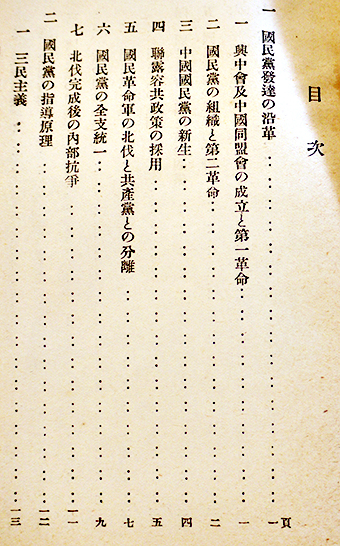 目次
一 國民黨發達の沿革……………一頁
一 興中會及中國同盟會の成立と第一革命……………一
二 國民黨の組織と第二革命……………二
三 中國國民黨の新生……………四
四 聯露容共政策の採用……………五
五 國民革命軍の北伐と共產黨との分離……………七
六 國民黨の全支統一……………九
七 北伐完成後の內部抗爭……………一一
二 國民黨の指導原理……………一二
一 三民主義……………一三